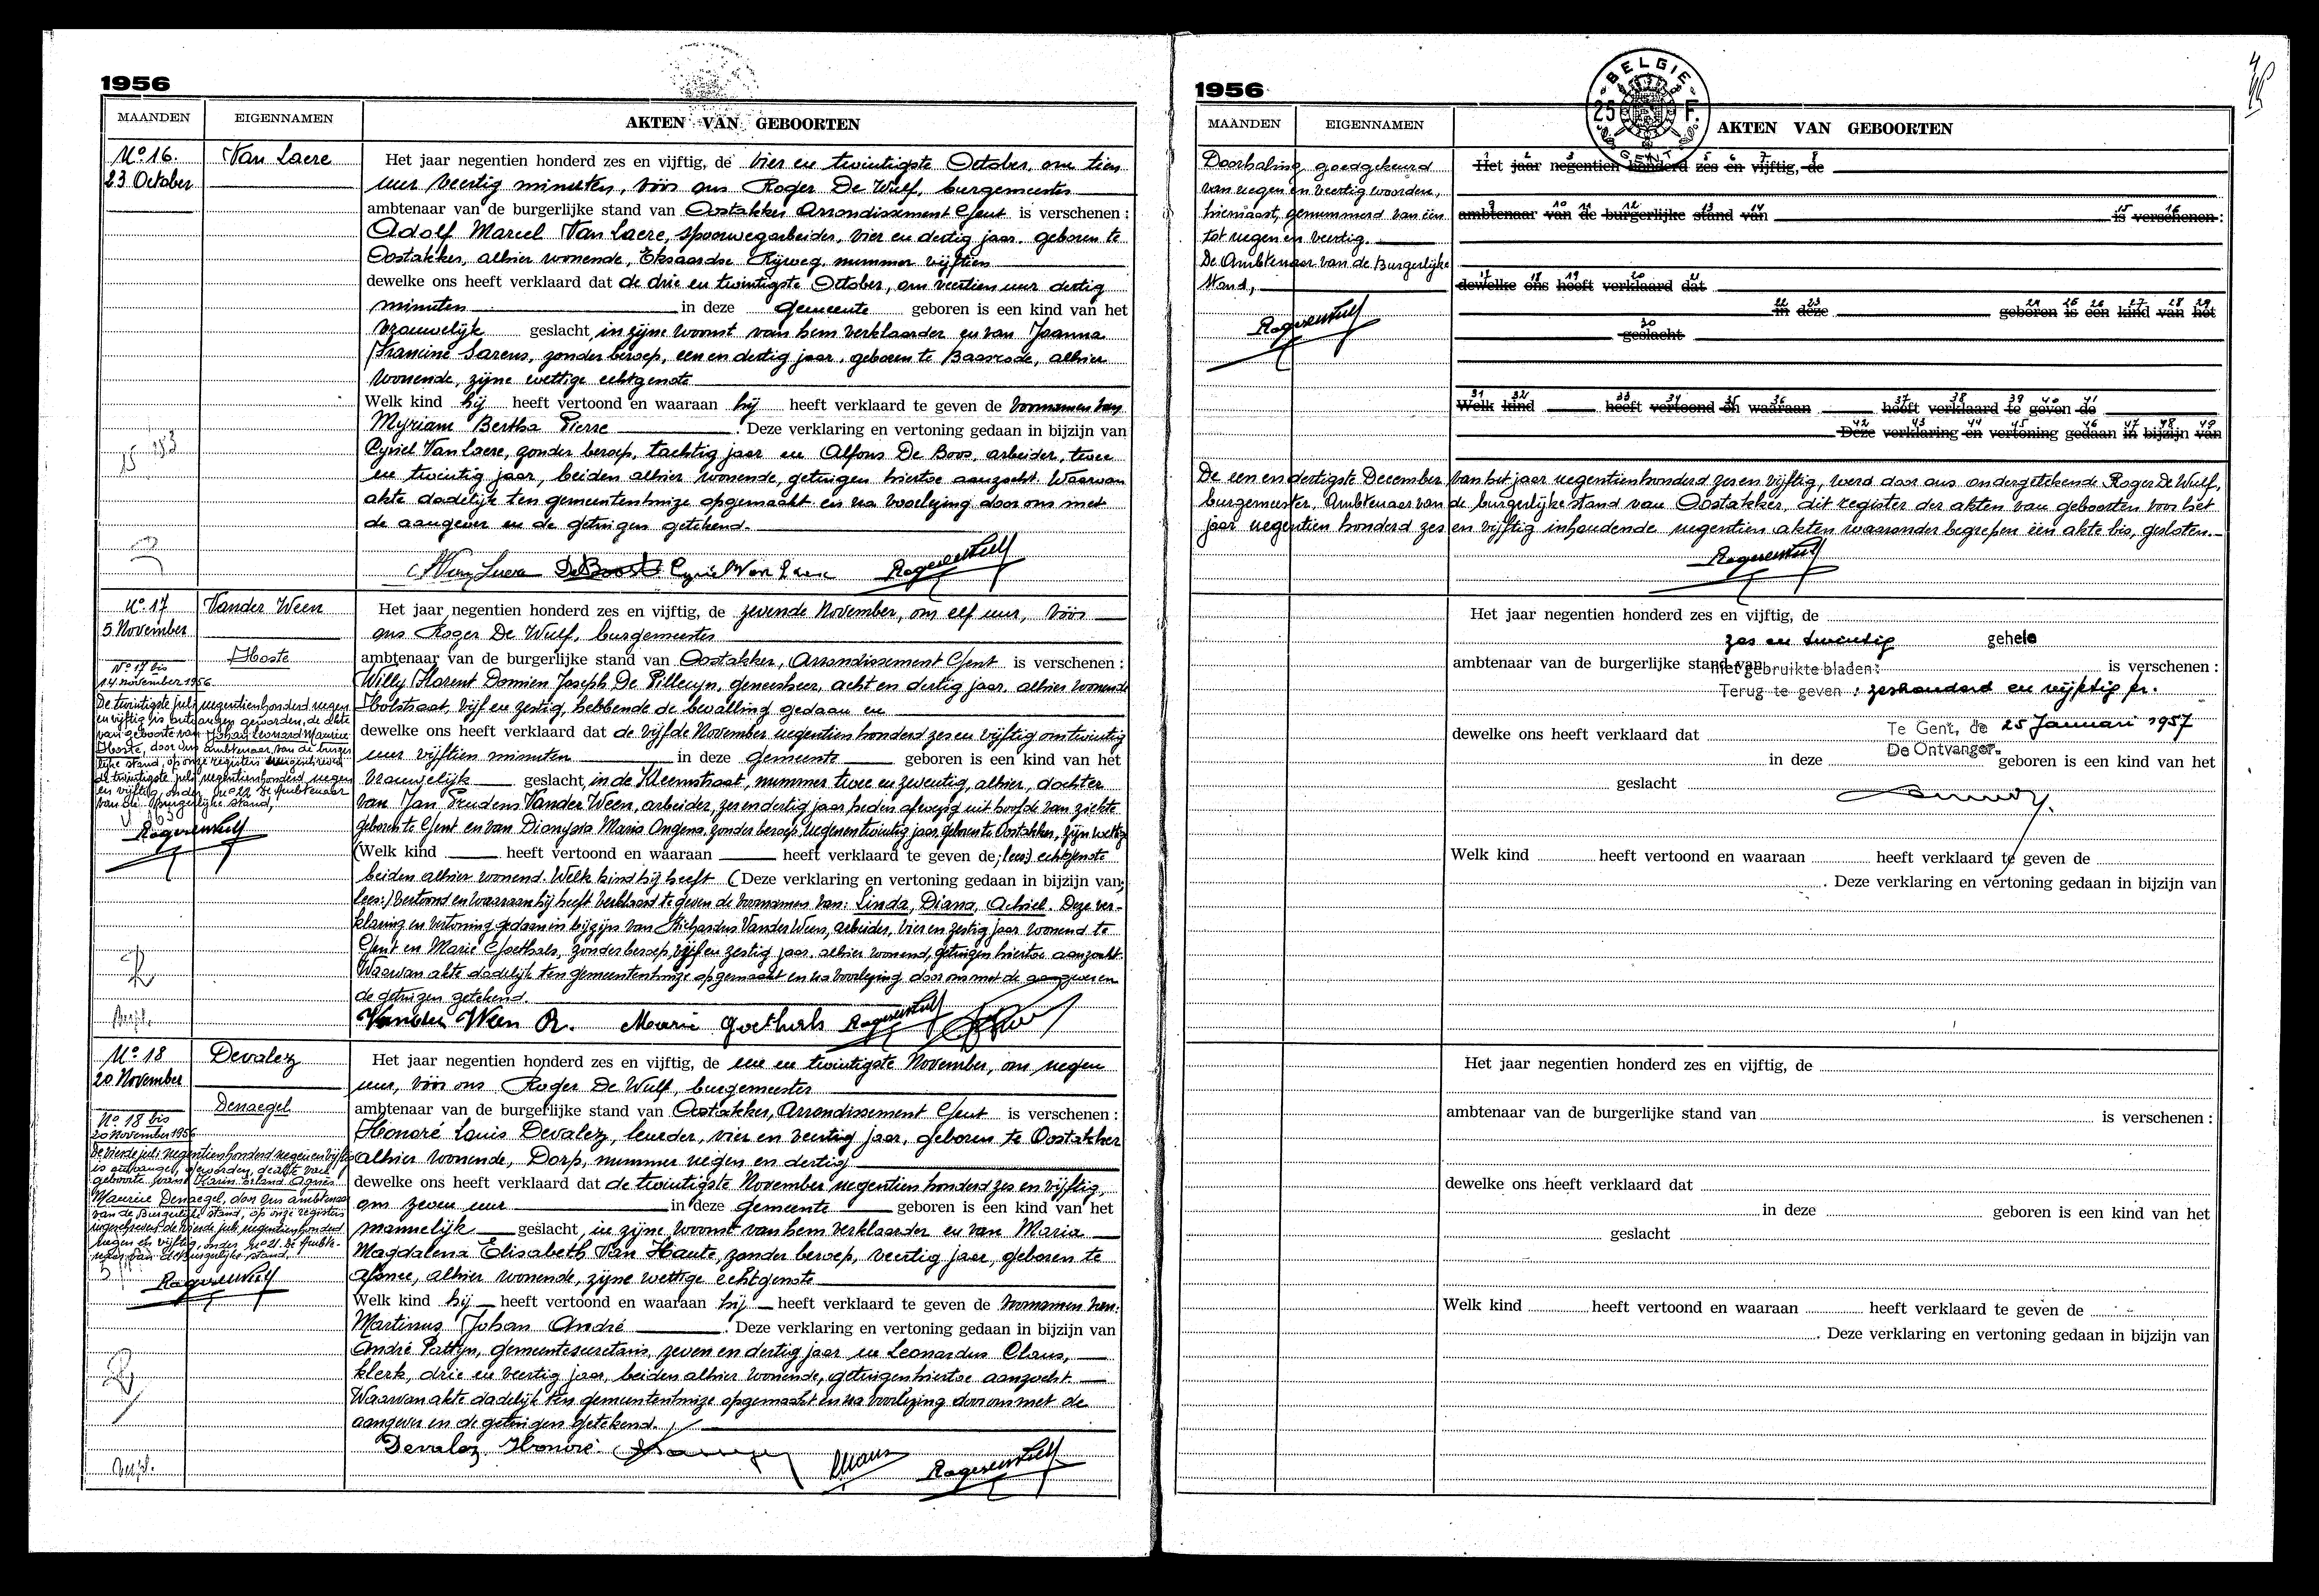 1956
MAANDEN EIGENNAMEN AKTEN VAN GEBOORTEN
No 16. Van Laere
23 October
Het jaar negentien honderd zes en vijftig, de vier en twintigste October, om tien
uur veertig minuten, vóór ons Roger De Wulf, burgemeester
ambtenaar van de burgerlijke stand van Oostakker Arrondissement Gent is verschenen :
Adolf Marcel Van Laere, spoorwegarbeider, vier en dertig jaar, geboren te
Oostakker, alhier wonende, Eksaardse Rijweg, nummer vijftien
dewelke ons heeft verklaard dat de drie en twintigste October, om veertien uur dertig
minuten in deze gemeente geboren is een kind van het
vrouwelijk geslacht, in zijne woonst van hem verklaarder en van Joanna
Francine Sarens, zonder beroep, een en dertig jaar, geboren te Baasrode, alhier
wonende, zijne wettige echtgenote
Welk kind hij heeft vertoond en waaraan hij heeft verklaard te geven de voornamen van
Myriam Bertha Pierre . Deze verklaring en vertoning gedaan in bijzijn van
Cyriel Van Laere, zonder beroep, tachtig jaar en Alfons De Boos, arbeider, twee
en twintig jaar, beiden alhier wonende, getuigen hiertoe aanzocht. Waarvan
akte dadelijk ten gemeentenhuize opgemaakt en na voorlezing door ons met
de aangever en de getuigen getekend.
Van Laere De Boos Cyriel Van Laere Roger De Wulf
No 17 Vander Ween
5 November
Hoste
No 17 bis
14 november 1956
De twintigste juli negentienhonderd negen
en vijftig is ontvangen geworden, de akte
van geboorte van Johan Leonard Maurice
Hoste, door ons ambtenaar van de burger
lijke stand, op onze registers ingeschreven
de twintigste juli negentienhonderd negen
en vijftig, onder No 22 De Ambtenaar
van de Burgerlijke stand,
Roger De Wulf
Het jaar negentien honderd zes en vijftig, de zevende November, om elf uur, vóór
ons Roger De Wulf, burgemeester
ambtenaar van de burgerlijke stand van Oostakker, Arrondissement Gent is verschenen :
Willy Florent Domien Joseph De Pillecyn, geneesheer, acht en dertig jaar, alhier wonende
Holstraat, vijf en zestig, hebbende de bevalling gedaan en
dewelke ons heeft verklaard dat de vijfde November negentien honderd zes en vijftig om twintig
uur vijftien minuten in deze gemeente geboren is een kind van het
vrouwelijk geslacht, in de Kleemstraat, nummer twee en zeventig, alhier, dochter
van Jan Prudens Vander Ween, arbeider, zes en dertig jaar, heden afwezig uit hoofde van ziekte
geboren te Gent en van Dionysia Maria Ongena, zonder beroep, negen en twintig jaar, geboren te Oostakker, zijn wettige
(Welk kind heeft vertoond en waaraan heeft verklaard te geven de; lees) echtgenote
beiden alhier wonend. Welk kind hij heeft (Deze verklaring en vertoning gedaan in bijzijn van;
lees:) vertoond en waaraan hij heeft verklaard te geven de voornamen van: Linda, Diana, Achiel. Deze ver-
klaring en vertoning gedaan in bijzijn van Richardus Vander Ween, arbeider, vier en zestig jaar wonend te
Gent en Marie Goethals, zonder beroep, vijf en zestig jaar, alhier wonend, getuigen hiertoe aanzocht.
Waarvan akte dadelijk ten gemeentenhuize opgemaakt en na voorlezing door ons met de aangever en
de getuigen getekend.
Vander Ween R. Marie Goethals Roger De Wulf
No 18 Devalez
20 November
Denaegel
No 18 bis
20 November 1956
De vierde juli negentienhonderd negen en vijftig
is ontvangen geworden, de akte van
geboorte van Karin Erland Agnes
Maurice Denaegel, door ons ambtenaar
van de Burgerlijke stand, op onze registers
ingeschreven de vierde juli negentienhonderd
negen en vijftig, onder No 21. De Ambte-
naar van de Burgerlijke stand.
Roger De Wulf
Het jaar negentien honderd zes en vijftig, de een en twintigste November, om negen
uur, vóór ons Roger De Wulf, burgemeester
ambtenaar van de burgerlijke stand van Oostakker, Arrondissement Gent is verschenen :
Honoré Louis Devalez, leurder, vier en veertig jaar, geboren te Oostakker
alhier wonende, Dorp, nummer negen en dertig
dewelke ons heeft verklaard dat de twintigste November negentien honderd zes en vijftig,
om zeven uur in deze gemeente geboren is een kind van het
mannelijk geslacht, in zijne woonst van hem verklaarder en van Maria
Magdalena Elisabeth Van Haute, zonder beroep, veertig jaar, geboren te
Afsnee, alhier wonende, zijne wettige echtgenote
Welk kind hij heeft vertoond en waaraan hij heeft verklaard te geven de voornamen van:
Martinus Johan André . Deze verklaring en vertoning gedaan in bijzijn van
André Pattyn, gemeentesecretaris, zeven en dertig jaar en Leonardus Claus,
klerk, drie en veertig jaar, beiden alhier wonende, getuigen hiertoe aanzocht.
Waarvan akte dadelijk ten gemeentenhuize opgemaakt en na voorlezing door ons met de
aangever en de getuigen getekend.
Devalez Honoré Claus Roger De Wulf
1956
BELGIE 25 F. GENT
MAANDEN EIGENNAMEN AKTEN VAN GEBOORTEN
Doorhaling goedgekeurd
van negen en veertig woorden,
hiernaast, genummerd van één
tot negen en veertig.
De Ambtenaar van de Burgerlijke
Stand,
Roger De Wulf
Het jaar negentien honderd zes en vijftig, de
ambtenaar van de burgerlijke stand van is verschenen :
dewelke ons heeft verklaard dat
in deze geboren is een kind van het
geslacht
Welk kind heeft vertoond en waaraan heeft verklaard te geven de
Deze verklaring en vertoning gedaan in bijzijn van
De een en dertigste December van het jaar negentienhonderd zes en vijftig, werd door ons ondergetekende Roger De Wulf,
burgemeester, Ambtenaar van de burgerlijke stand van Oostakker, dit register der akten van geboorten voor het
jaar negentien honderd zes en vijftig inhoudende negentien akten waaronder begrepen één akte bis, gesloten.
Roger De Wulf
Het jaar negentien honderd zes en vijftig, de
zes en twintig gehele
ambtenaar van de burgerlijke stand van is verschenen :
niet gebruikte bladen:
Terug te geven : zeshonderd en vijftig fr.
dewelke ons heeft verklaard dat
Te Gent, de 25 Januari 1957
De Ontvanger.
in deze geboren is een kind van het
geslacht
Welk kind heeft vertoond en waaraan heeft verklaard te geven de
. Deze verklaring en vertoning gedaan in bijzijn van
Het jaar negentien honderd zes en vijftig, de
ambtenaar van de burgerlijke stand van is verschenen :
dewelke ons heeft verklaard dat
in deze geboren is een kind van het
geslacht
Welk kind heeft vertoond en waaraan heeft verklaard te geven de
. Deze verklaring en vertoning gedaan in bijzijn van